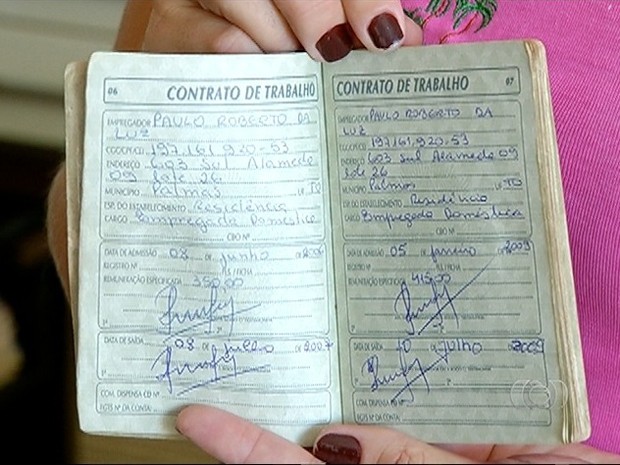 06 CONTRATO DE TRABALHO
EMPREGADOR PAULO ROBERTO DA
LUZ
CGC/CPF/CEI 197.161.920-53
ENDEREÇO 603 Sul Alameda
09 lote 26
MUNICÍPIO Palmas UF TO
ESP. DO ESTABELECIMENTO Residência
CARGO Empregada Doméstica
CBO Nº
DATA DE ADMISSÃO 08 DE junho DE
REGISTRO Nº FLS./FICHA
REMUNERAÇÃO ESPECIFICADA 350,00
1ª 2ª
DATA DE SAÍDA 08 DE julho DE 2007
1ª 2ª
COM. DISPENSA CD Nº
FGTS Nº DA CONTA
CONTRATO DE TRABALHO 07
EMPREGADOR PAULO ROBERTO DA
LUZ
CGC/CPF/CEI 197.161.920-53
ENDEREÇO 603 Sul Alameda 09
lote 26
MUNICÍPIO Palmas UF TO
ESP. DO ESTABELECIMENTO Residência
CARGO Empregada Doméstica
CBO Nº
DATA DE ADMISSÃO 05 DE janeiro DE 2009
REGISTRO Nº FLS./FICHA
REMUNERAÇÃO ESPECIFICADA 415,00
1ª 2ª
DATA DE SAÍDA 10 DE julho DE 2009
1ª 2ª
COM. DISPENSA CD Nº
FGTS Nº DA CONTA